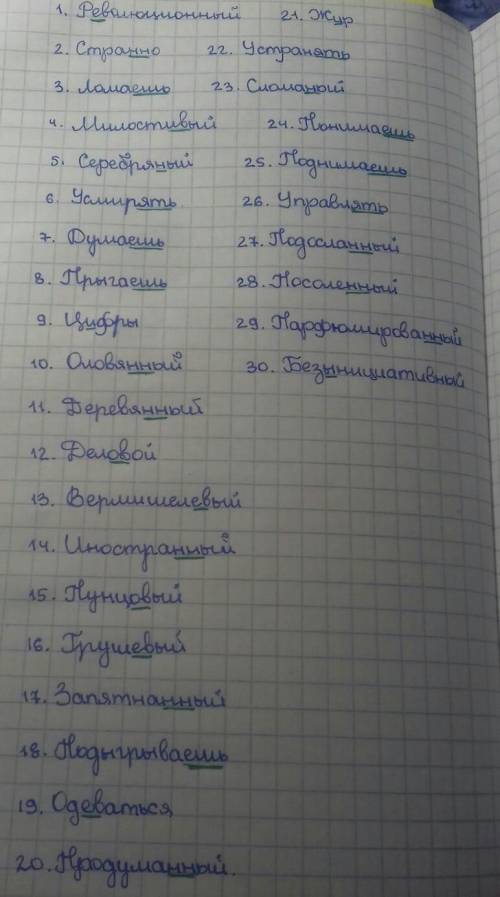 1. Революционный 21. Жур
2. Странно 22. Устранять
3. Ломаешь 23. Сломаный
4. Милостивый 24. Понимаешь
5. Серебряный 25. Поднимаешь
6. Усмирять 26. Управлять
7. Думаешь 27. Подосланный
8. Прыгаешь 28. Посоленный
9. Цифры 29. Парфюмированный
10. Оловянный 30. Безынициативный
11. Деревянный
12. Деловой
13. Вермишелевый
14. Иностранный
15. Пунцовый
16. Грушевый
17. Запятнанный
18. Подыгрываешь
19. Одеваться
20. Продуманный.